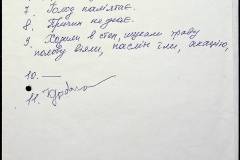 7. Голод пам'ятає.
8. Причин не знає.
9. Ходили в степ, шукали траву
полову віяли, паслін їли, акацію,
10. —
11.